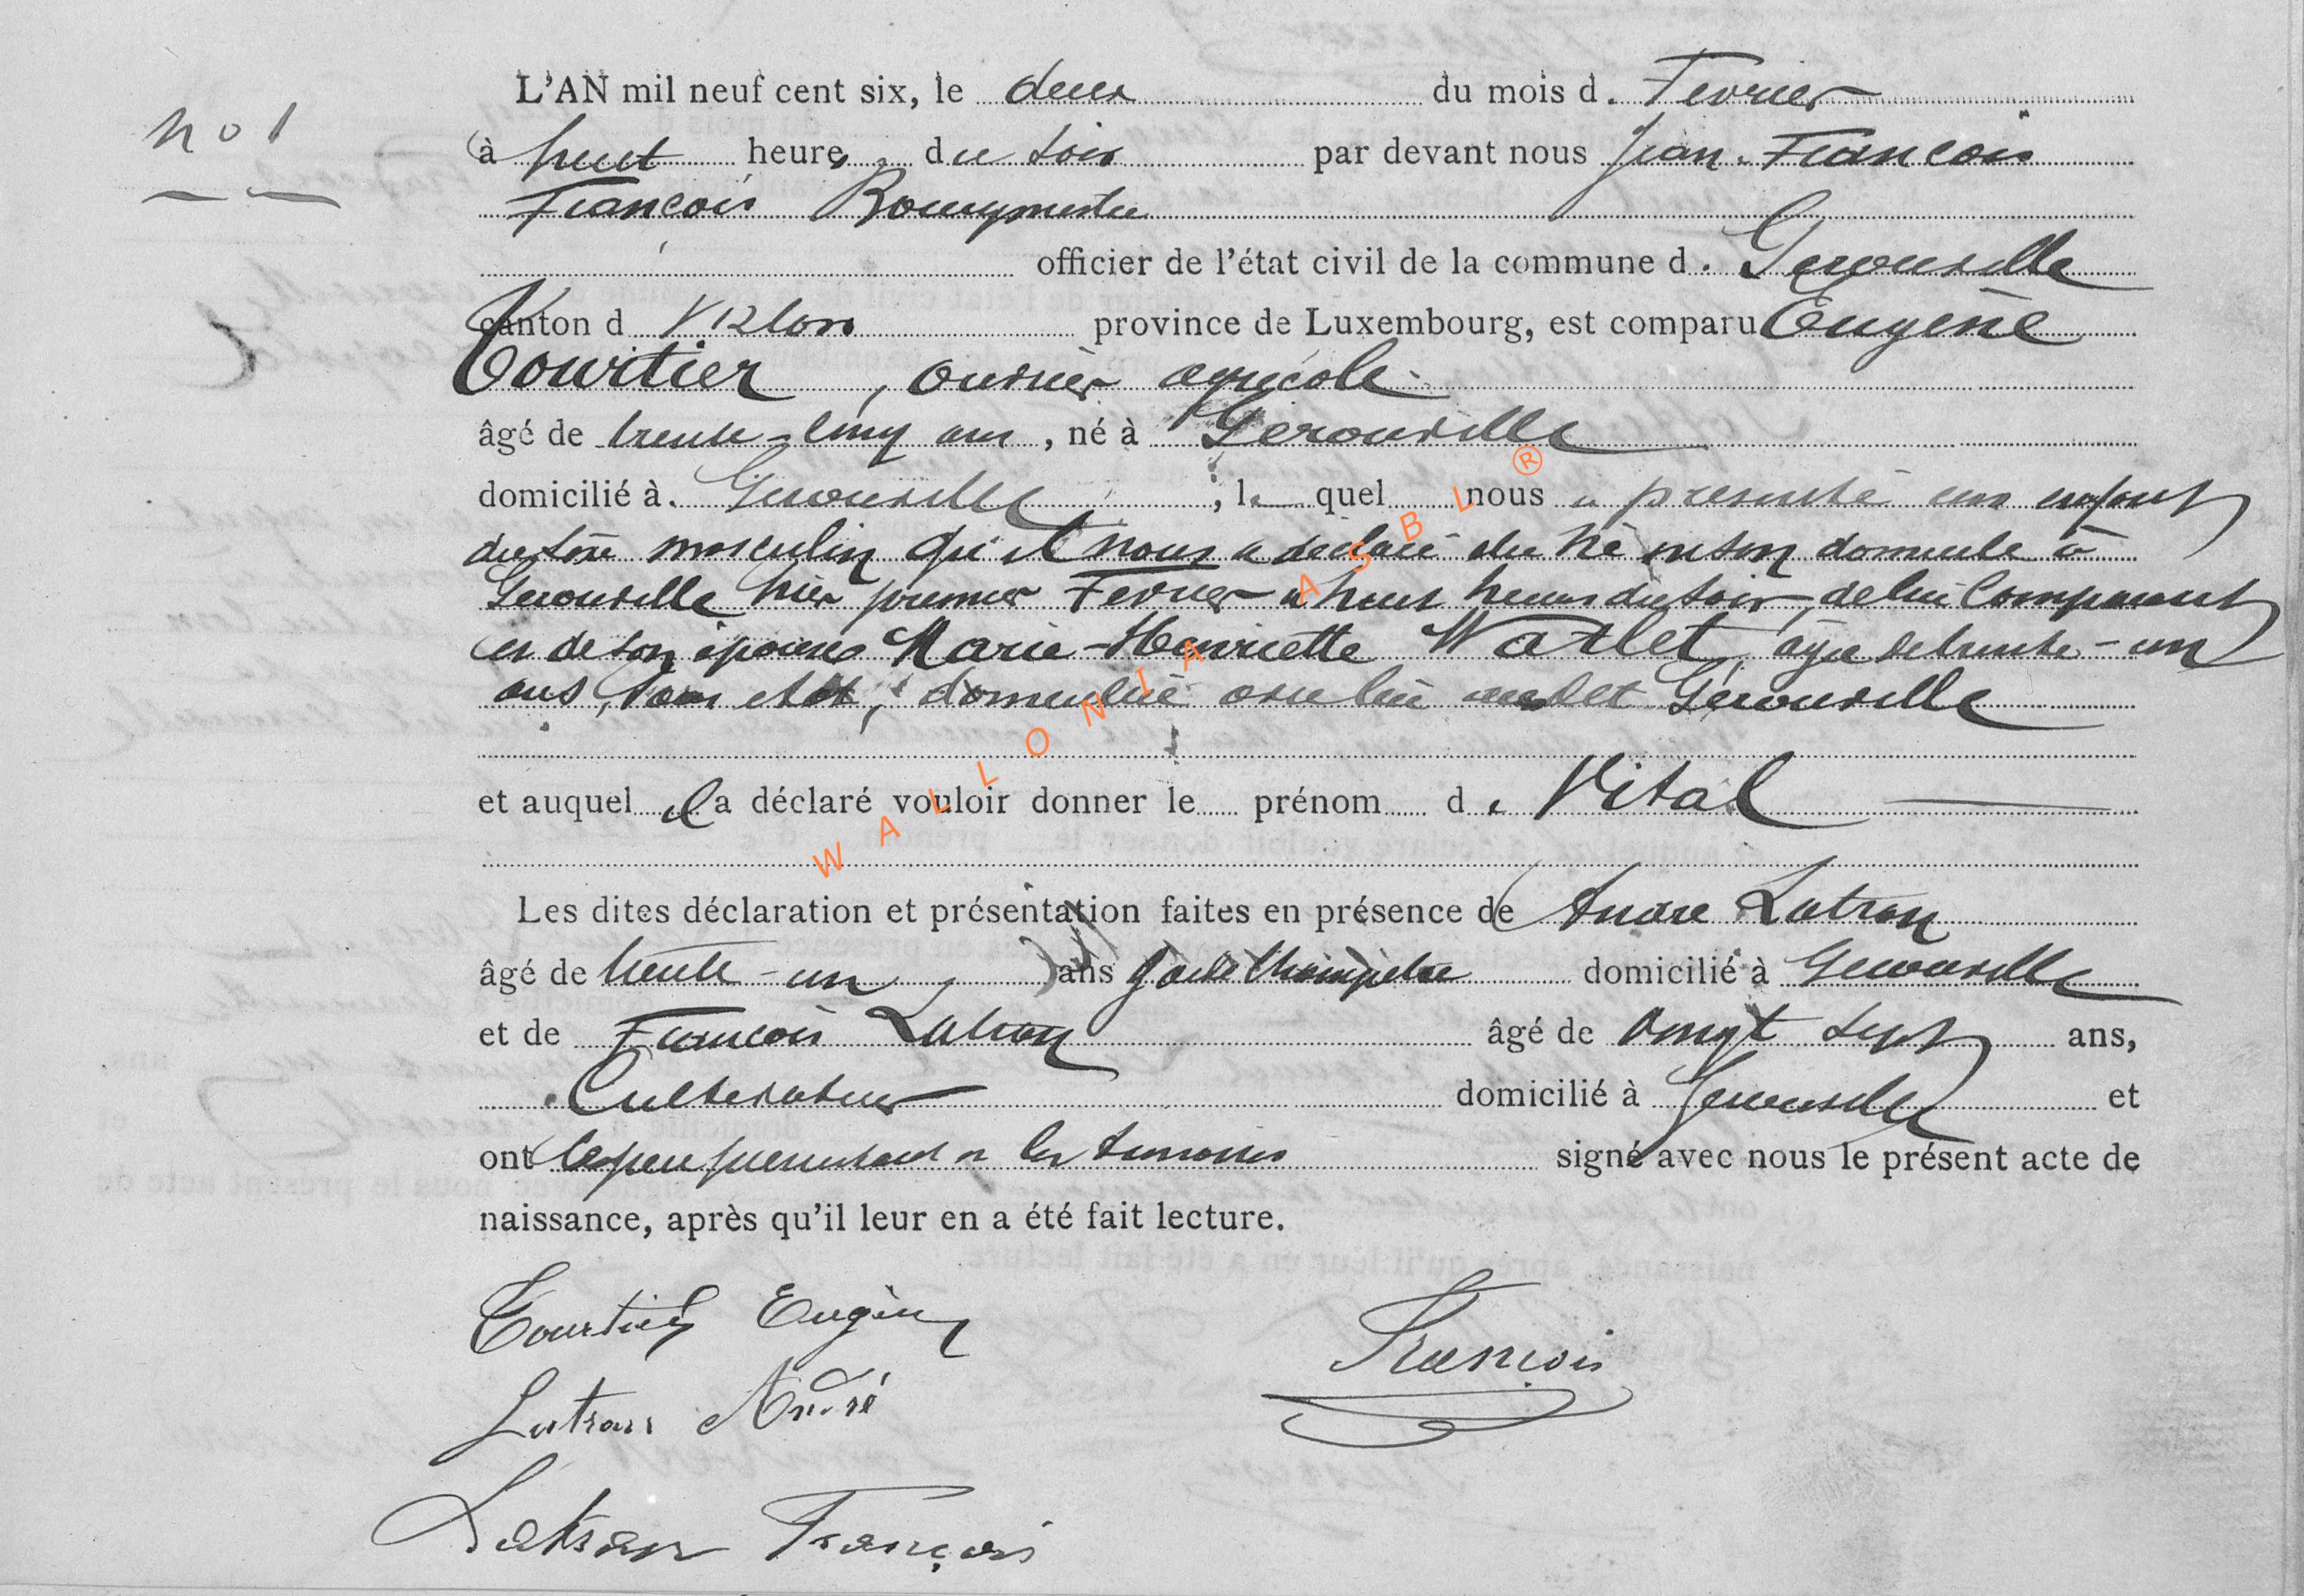 L'AN mil neuf cent six, le deux du mois de Fevrier
no 1
à huit heures du soir par devant nous Jean-François
François Bourgmestre
officier de l'état civil de la commune de Gerouville
canton d Virton province de Luxembourg, est comparu Eugène
Courtier, ouvrier agricole
âgé de trente-cinq ans, né à Gerouville
domicilié à Gerouville, lequel nous a presenté un enfant
du sexe masculin qu'il nous a déclaré être né en son domicile à
Gerouville hier premier Fevrier à huit heures du soir, de lui Comparant
et de son épouse Marie-Henriette Watlet, agée de trente-un
ans, sans état, domiciliée avec lui audit Gerouville
et auquel il a déclaré vouloir donner le prénom de Vital
Les dites déclaration et présentation faites en présence de Andre Latran
âgé de trente-un ans garde Champetre domicilié à Gerouville
et de François Latran âgé de vingt sept ans,
Cultivateur domicilié à Gerouville et
ont le père présentant et les temoins signé avec nous le présent acte de
naissance, après qu'il leur en a été fait lecture.
Courtier Eugène
François
Latran André
Latran François
WALLONIA ASBL ®